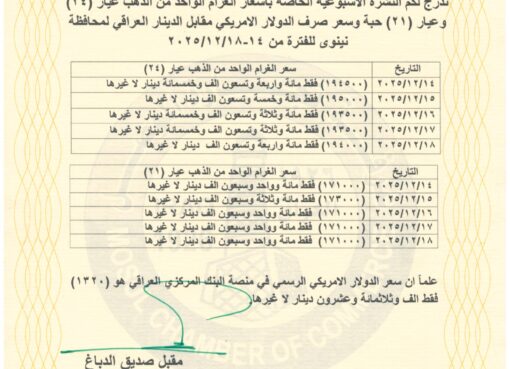 ندرج لكم النشرة الاسبوعية الخاصة باسعار الغرام الواحد من الذهب عيار (٢٤)
وعيار (٢١) حبة وسعر صرف الدولار الامريكي مقابل الدينار العراقي لمحافظة
نينوى للفترة من ١٤-٢٠٢٥/١٢/١٨
التاريخ سعر الغرام الواحد من الذهب عيار (٢٤)
٢٠٢٥/١٢/١٤ (١٩٤٥٠٠) فقط مائة واربعة وتسعون الف وخمسمائة دينار لا غيرها
٢٠٢٥/١٢/١٥ (١٩٥٠٠٠) فقط مائة وخمسة وتسعون الف دينار لا غيرها
٢٠٢٥/١٢/١٦ (١٩٣٥٠٠) فقط مائة وثلاثة وتسعون الف وخمسمائة دينار لا غيرها
٢٠٢٥/١٢/١٧ (١٩٣٥٠٠) فقط مائة وثلاثة وتسعون الف وخمسمائة دينار لا غيرها
٢٠٢٥/١٢/١٨ (١٩٤٠٠٠) فقط مائة واربعة وتسعون الف دينار لا غيرها
التاريخ سعر الغرام الواحد من الذهب عيار (٢١)
٢٠٢٥/١٢/١٤ (١٧١٠٠٠) فقط مائة وواحد وسبعون الف دينار لا غيرها
٢٠٢٥/١٢/١٥ (١٧٣٠٠٠) فقط مائة وثلاثة وسبعون الف دينار لا غيرها
٢٠٢٥/١٢/١٦ (١٧١٠٠٠) فقط مائة وواحد وسبعون الف دينار لا غيرها
٢٠٢٥/١٢/١٧ (١٧١٠٠٠) فقط مائة وواحد وسبعون الف دينار لا غيرها
٢٠٢٥/١٢/١٨ (١٧١٠٠٠) فقط مائة وواحد وسبعون الف دينار لا غيرها
علماً ان سعر الدولار الامريكي الرسمي في منصة البنك المركزي العراقي هو (١٣٢٠)
فقط الف وثلاثمائة وعشرون دينار لا غيرها
MOSUL CHAMBER OF COMMERCE
مقبل صديق الدباغ